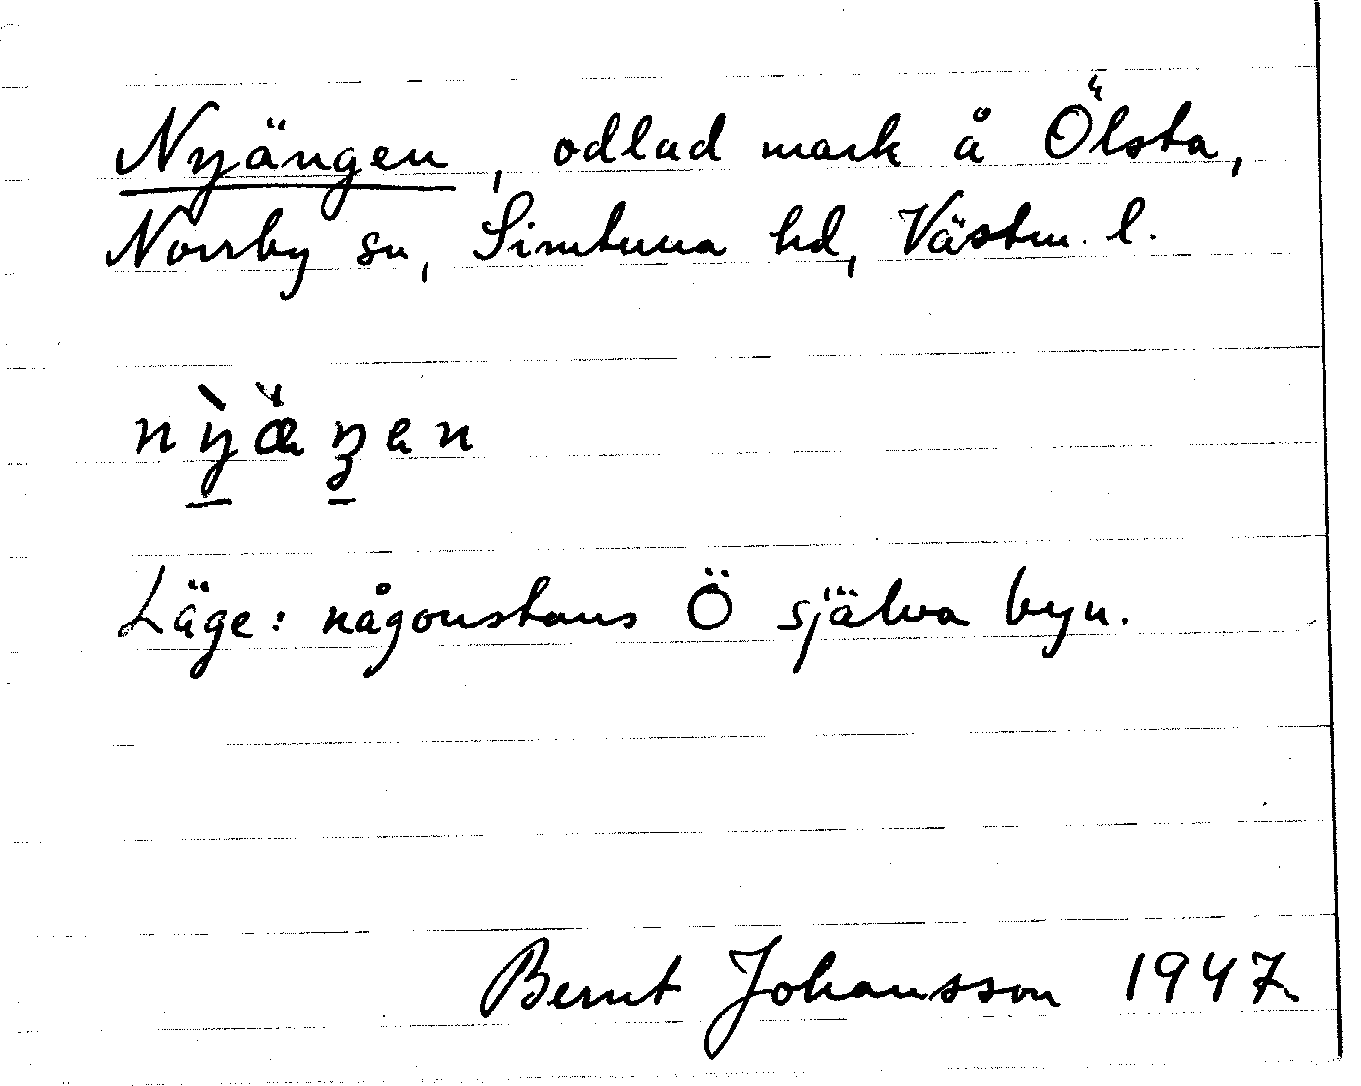 Nyängen, odlad mark å Ölsta,
Norrby sn, Simtuna hd, Västm. l.
nỳæ̌ŋen
Läge: någonstans Ö själva byn.
Bernt Johansson 1947.